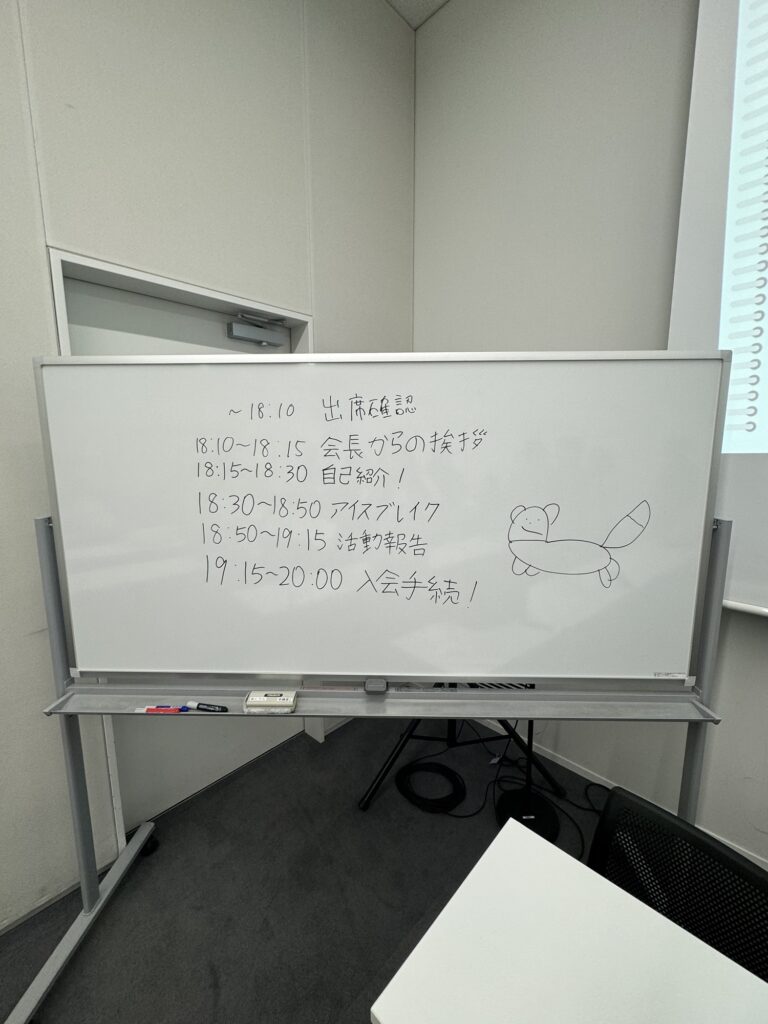 ～18:10 出席確認
18:10～18:15 会長からの挨拶
18:15～18:30 自己紹介!
18:30～18:50 アイスブレイク
18:50～19:15 活動報告
19:15～20:00 入会手続!